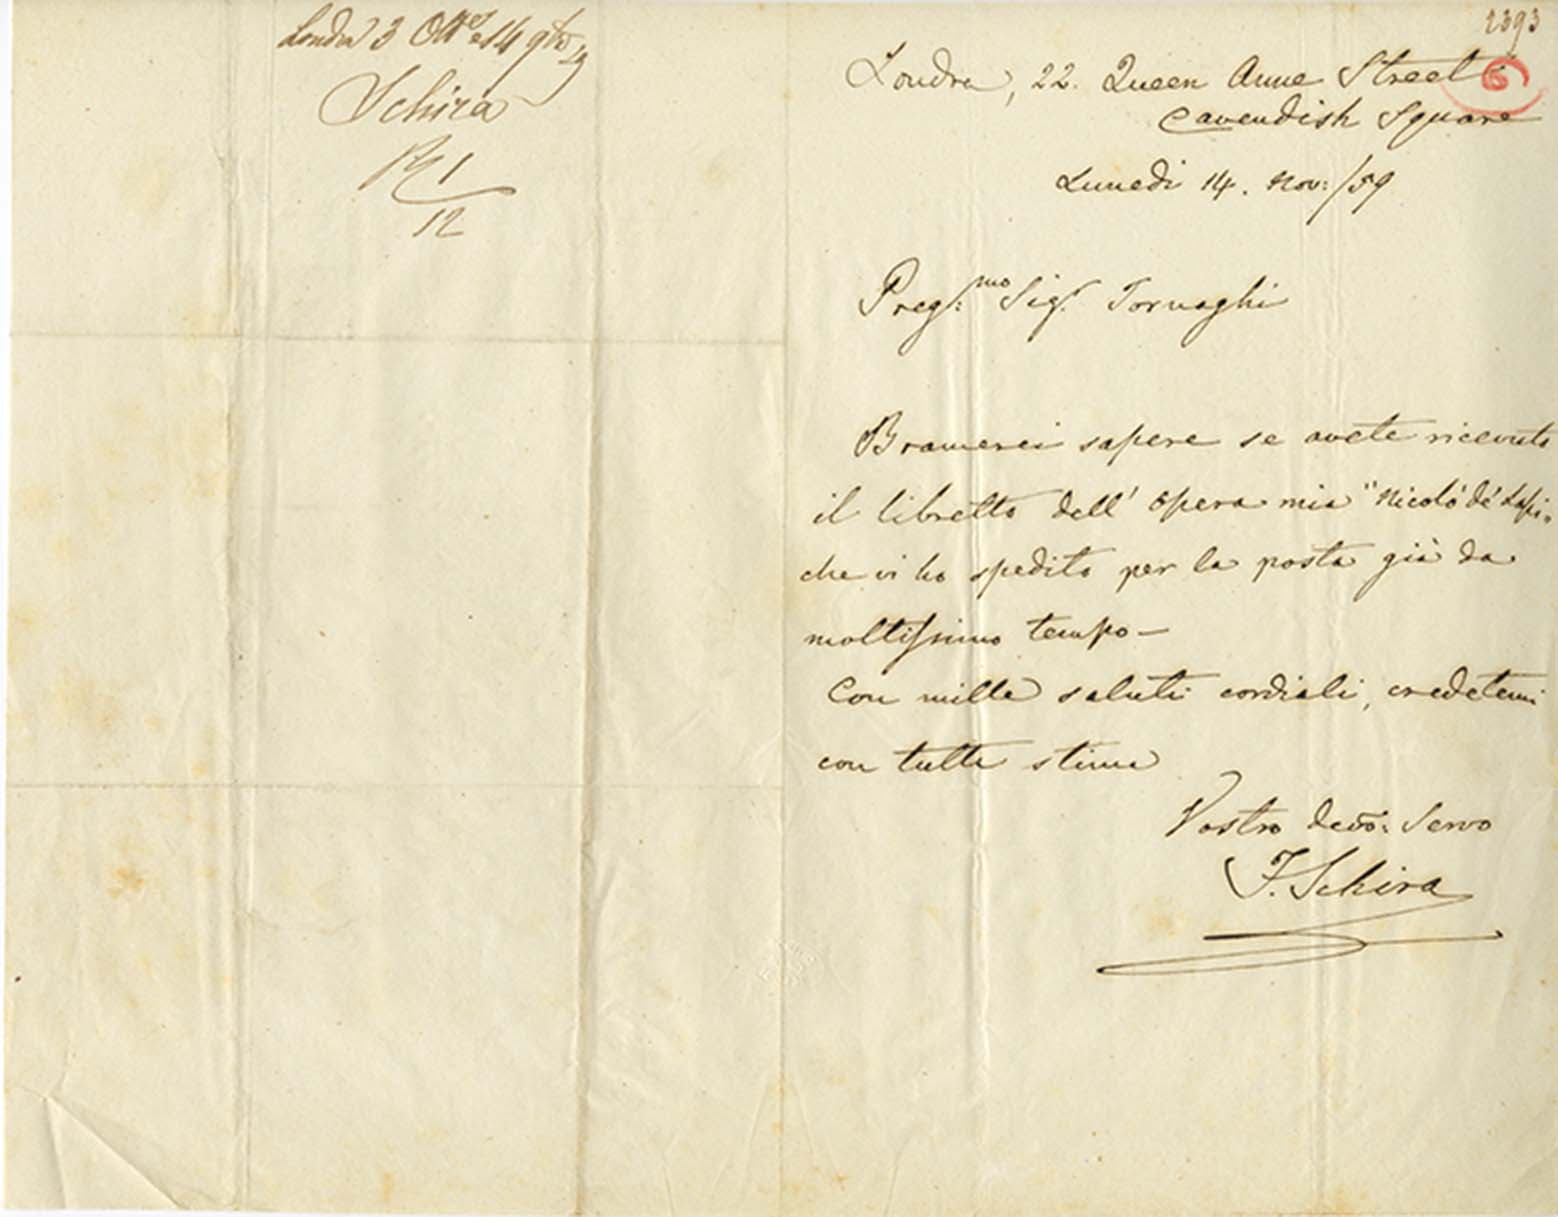 Londra 3 Ott.e e 14 9bre 59
Schira
R 1
12
2393
6
Londra, 22. Queen Anne Street
Cavendish Square
Lunedì 14. Nov:/59
Preg:mo Sigr. Tornaghi
Bramerei sapere se avete ricevuto
il libretto dell' opera mia "Nicolò de' Lapi"
che vi ho spedito per la posta già da
moltissimo tempo—
Con mille saluti cordiali, credetemi
con tutta stima
Vostro devo: Servo
F. Schira